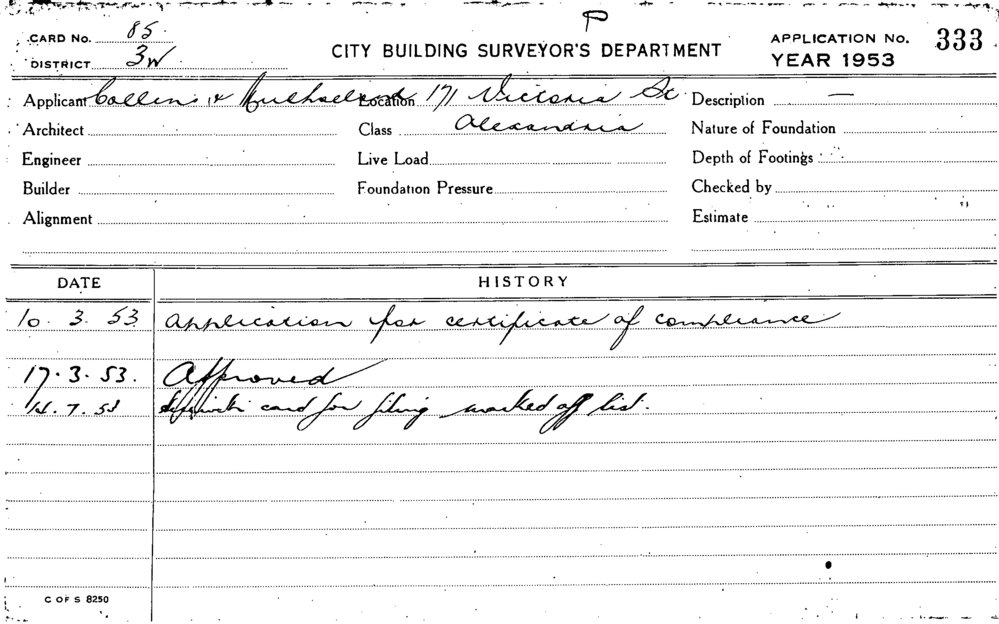 P
CARD No. 85
DISTRICT 3W
CITY BUILDING SURVEYOR'S DEPARTMENT
APPLICATION No. 333
YEAR 1953
Applicant Collins & Location 171 Victoria St Description —
Architect Class Alexandria Nature of Foundation
Engineer Live Load Depth of Footings
Builder Foundation Pressure Checked by
Alignment Estimate
DATE HISTORY
10. 3. 53 Application for certificate of compliance
17. 3. 53. Approved
14. 7. 53 card for filing marked off list.
C OF S 8250